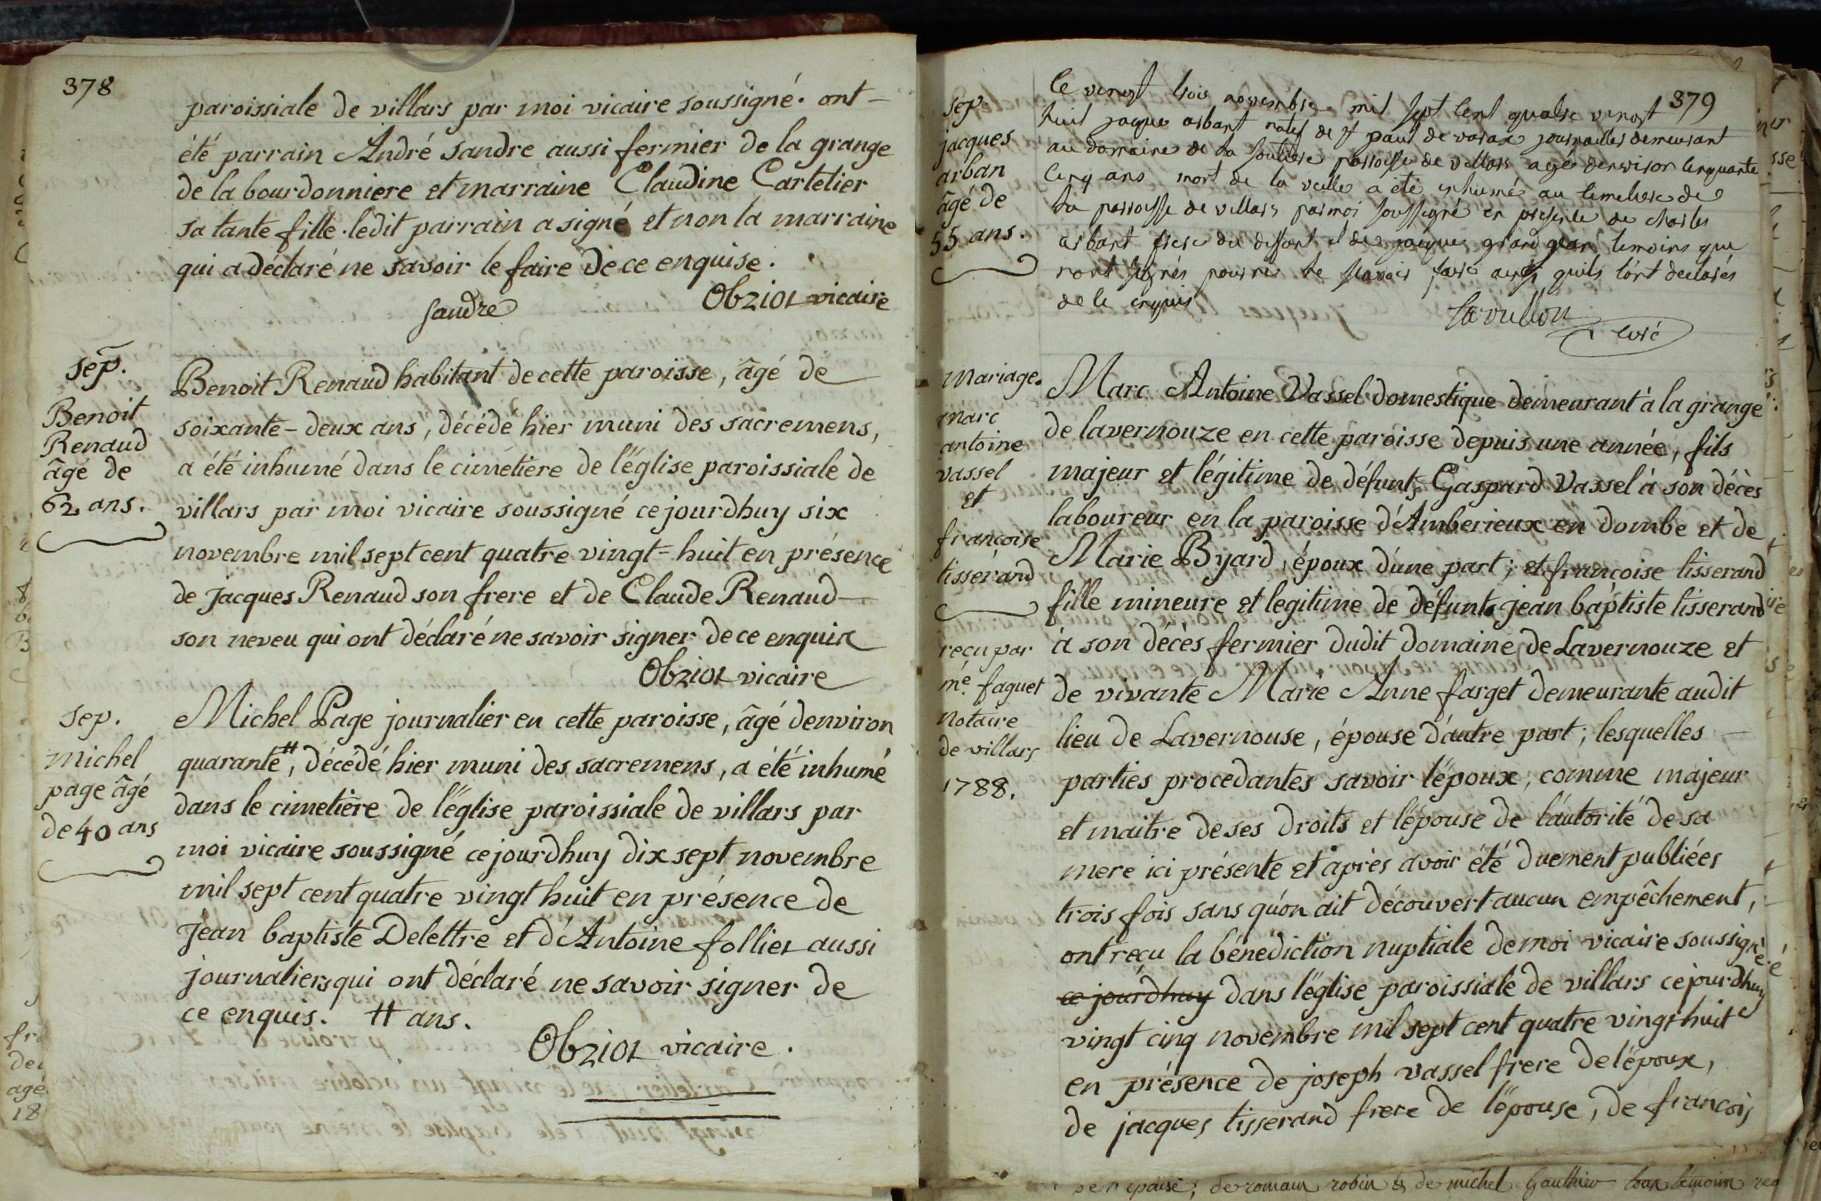 378
paroissiale de villars par moi vicaire soussigné. ont-
été parrain André Sandre aussi fermier de la grange
de la bourdonniere et marraine Claudine Cartelier
sa tante fille. ledit parrain a signé et non la marraine
qui a déclaré ne savoir le faire de ce enquise.
Sandre
Obziol vicaire
sep.
Benoit
Renaud
âgé de
62 ans.
Benoit Renaud habitant de cette paroisse, âgé de
soixante-deux ans, décédé hier muni des sacremens,
a été inhumé dans le cimetiere de l'église paroissiale de
villars par moi vicaire soussigné ce jourdhuy six
novembre mil sept cent quatre vingt=huit en présence
de jacques Renaud son frere et de Claude Renaud
son neveu qui ont déclaré ne savoir signer de ce enquis
Obziol vicaire
sep.
michel
page âgé
de 40 ans
Michel Page journalier en cette paroisse, âgé denviron
quarante #, décédé hier muni des sacremens, a été inhumé
dans le cimetière de l'église paroissiale de villars par
moi vicaire soussigné ce jourdhuy dix sept novembre
mil sept cent quatre vingt huit en présence de
jean baptiste Delettre et d'Antoine follier aussi
journaliers qui ont déclaré ne savoir signer de
ce enquis. # ans.
Obziol vicaire.
379
sep.
jacques
arban
âgé de
55 ans.
le vingt trois novembre mil sept cent quatre vingt
huit jaques arbant natif de st paul de varax journallier demeurant
au domaine de la paroisse de villars agé denviron cinquante
cinq ans mort de la veille a été inhumé au cimetiere de
la parroisse de villars par moi soussigné en presence de charles
arbant frere du deffunt et de jacques grand temoins qui
nont signés pour ne le scavoir faire ainsi quils l'ont declarés
de le enquis
Savullon
curé
mariage.
marc
antoine
vassel
et
francoise
tisserand
reçu par
me. faguet
notaire
de villars
1788.
Marc Antoine Vassel domestique demeurant à la grange
de lavernouze en cette paroisse depuis une année, fils
majeur et légitime de défunt Gaspard Vassel à son décès
laboureur en la paroisse d'Amberieux en dombe et de
Marie Byard, époux d'une part; et francoise tisserand
fille mineure et legitime de défunt jean baptiste tisserand
à son décès fermier dudit domaine de Lavernouze et
de vivante Marie Anne farget demeurante audit
lieu de Lavernouse, épouse d'autre part; lesquelles
parties procedantes savoir l'époux, comme majeur
et maitre de ses droits et l'épouse de l'autorité de sa
mere ici présente et après avoir été duement publiées
trois fois sans qu'on ait découvert aucun empêchement,
ont reçu la bénédiction nuptiale de moi vicaire soussigné
ce jourdhuy dans l'église paroissiale de villars ce jourdhuy
vingt cinq novembre mil sept cent quatre vingt huit
en présence de joseph vassel frere de l'époux,
de jacques tisserand frere de l'épouse, de francois
de romain robin et de michel Gauthier